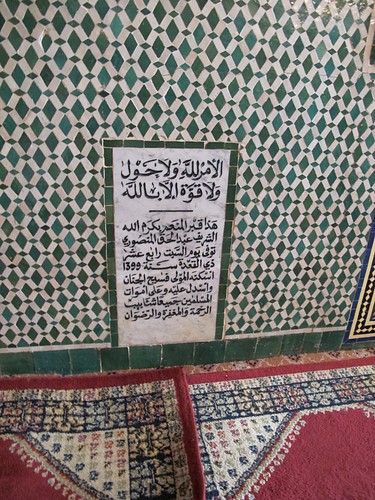 الأمر لله ولا حول
ولا قوة الا بالله
هذا قبر المنعم بكرم الله
الشريف عبد الحق المنصوري
توفى يوم السبت رابع عشر
ذي القعدة سنة 1399
اسكنه المولى فسيح الجنان
واسدل عليه وعلى اموات
المسلمين جميعا شئابيب
الرحمة والمغفرة والرضوان